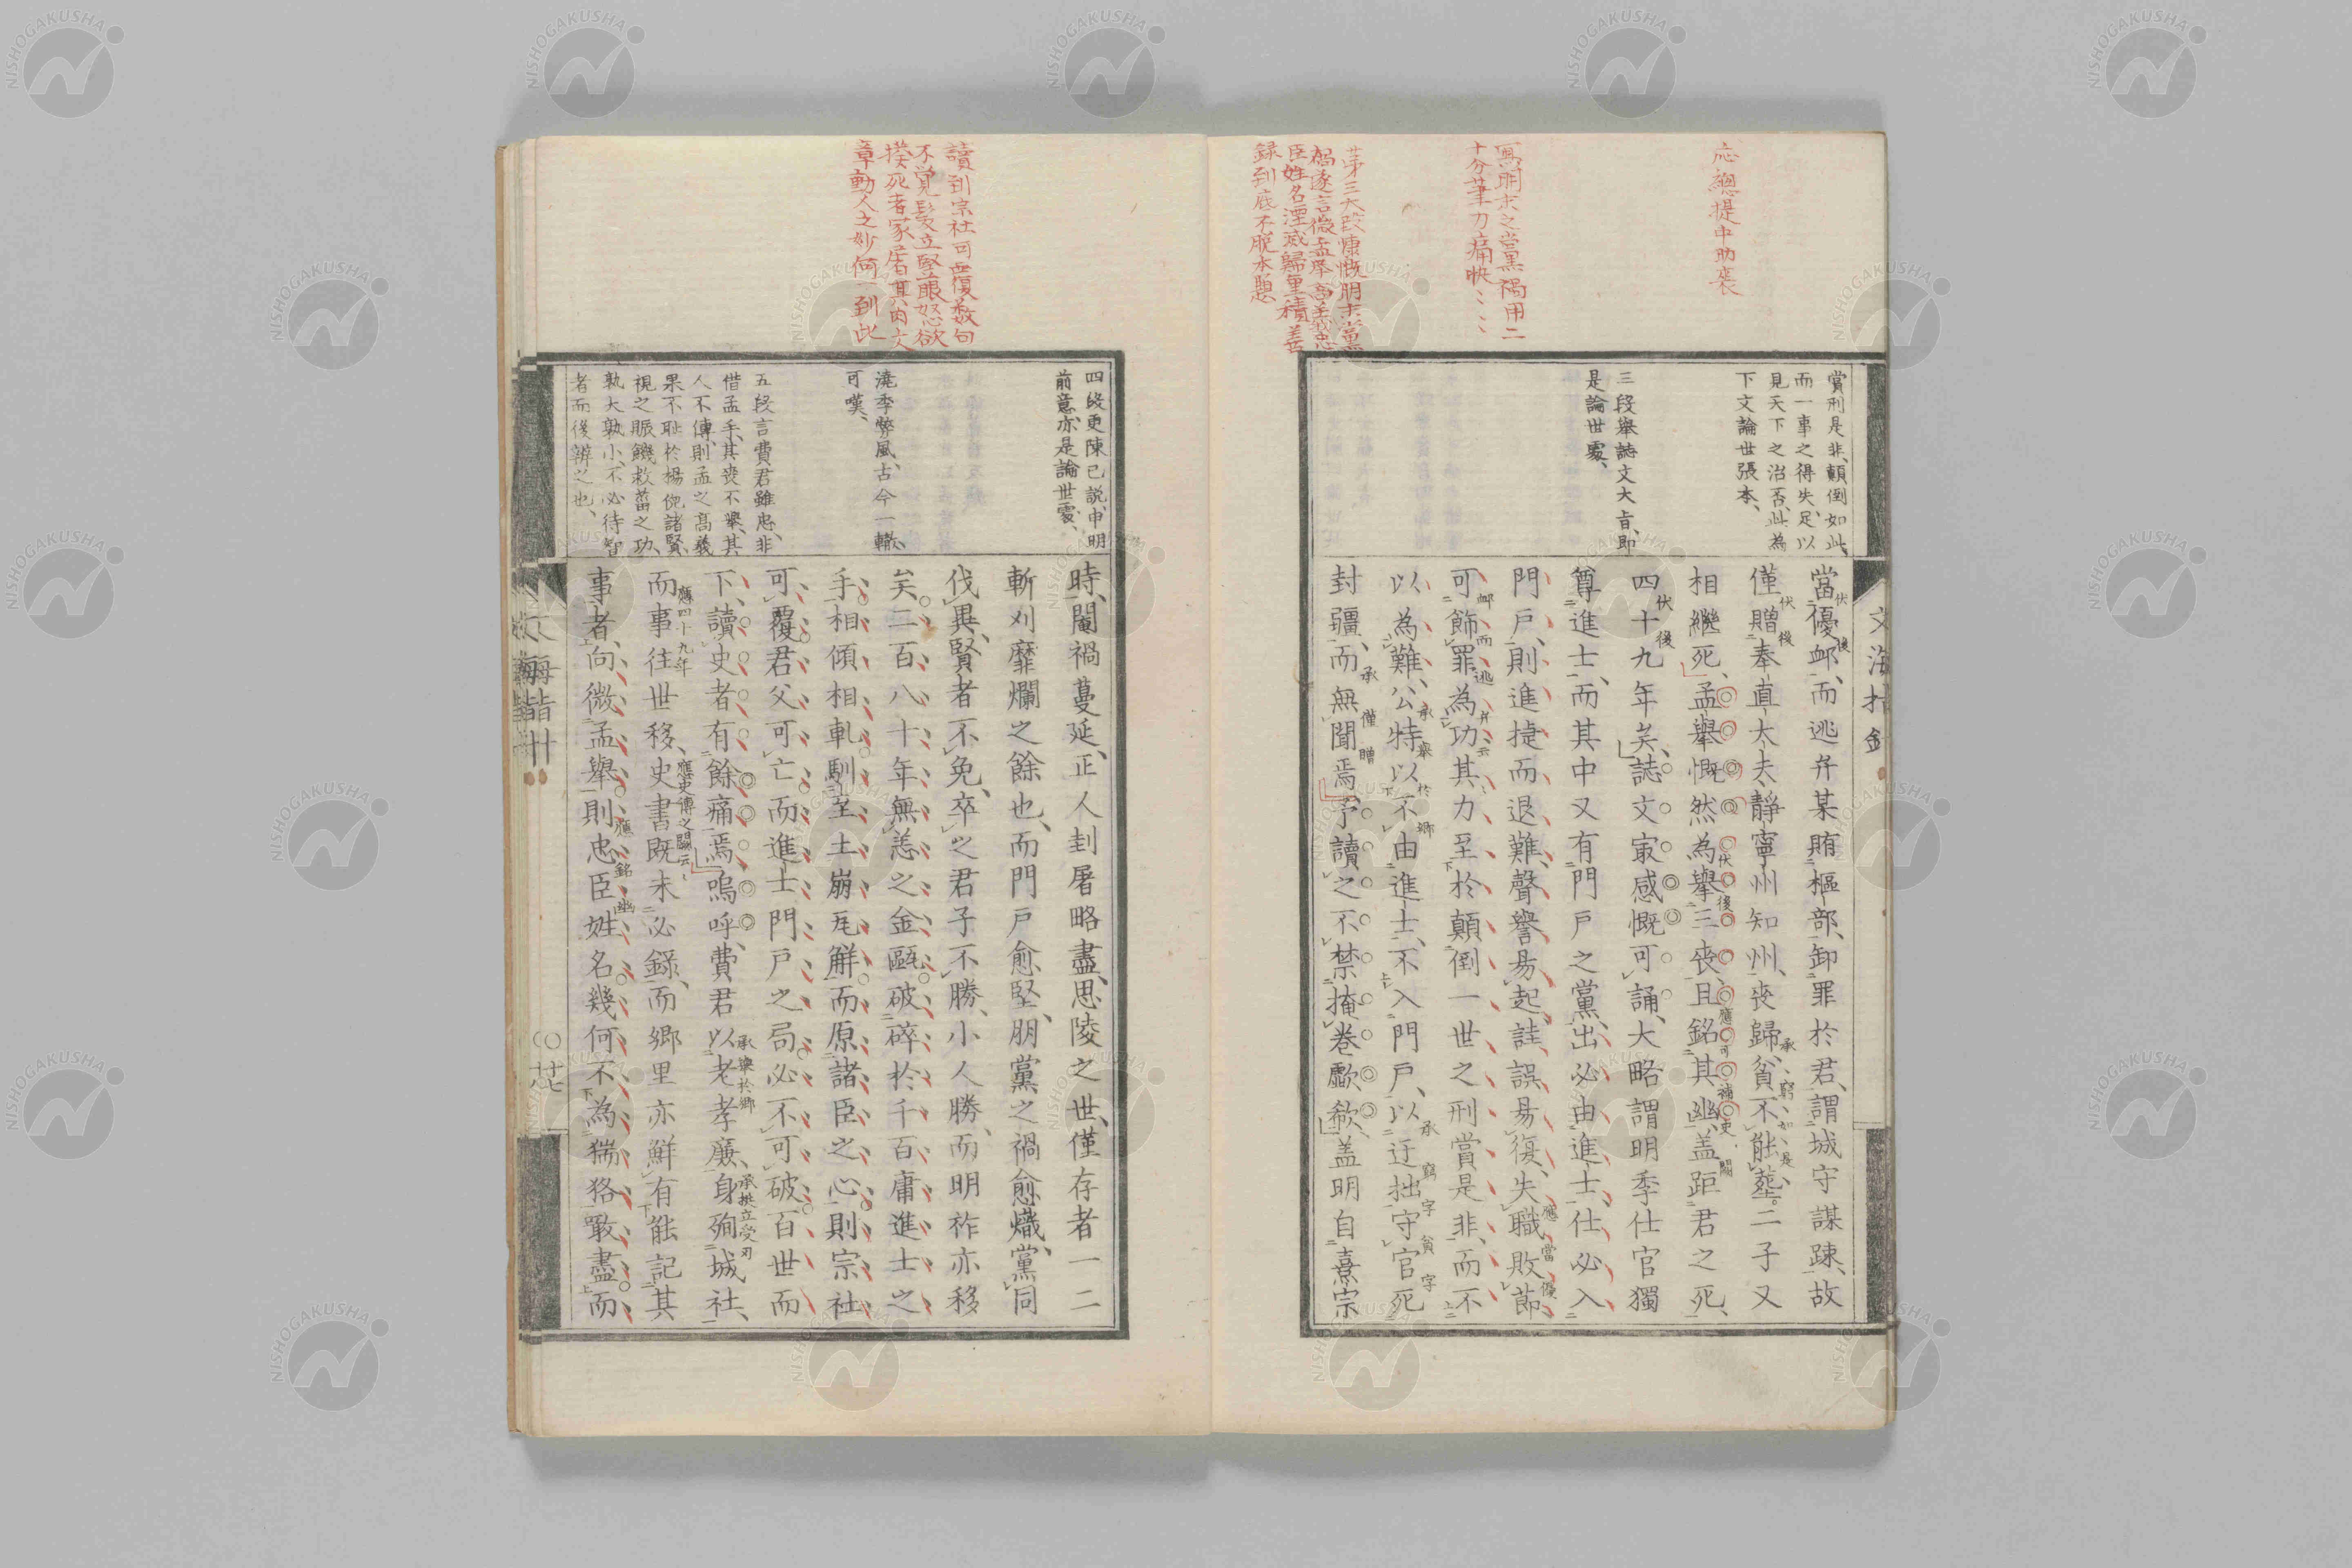 応總提中助喪
寫明末之黨禍用二
十分筆力痛快〻〻〻
第三大段慷慨明末黨
禍遂言微孟舉高義忠
臣姓名湮滅歸重積善
録到底不脫本題
賞刑是非、顛倒如此、
而一事之得失、足以
見天下之治否、此為
下文論世張本、
三段舉誌文大旨、即
是論世處、
文海指針
當優卹、而逃弁某賄樞部、卸罪於君、謂城守謀踈、故
僅贈奉直大夫、靜寧州知州、喪歸、貧不能塟。二子又
相繼死、孟舉慨然為擧三喪、且銘其幽、盖距君之死、
四十九年矣、誌文㝡感慨可誦、大略謂明季仕官獨
尊進士、而其中又有門戸之黨、出必由進士、仕必入
門戸、則進捷而退難、聲譽易起、詿誤易復、失職敗節、
可飾罪為功、其力至於顛倒一世之刑賞是非、而不
以為難、公特以不由進士、不入門戸、以迂拙守官死
封疆、而無聞焉、予讀之不禁掩卷歔欷、盖明自熹宗
伏後
伏後
伏後
伏後
應可補史闕
承窮如是
應當優
卹而逃弁云〻
承舉於鄉
承窮字貧字
承僅贈
讀到宗社可覆數句
不覚髮立竪眼怒欲
搩死者冢屠其肉文
章動人之妙何一到此
四段更陳已説、申明
前意、亦是論世處、
澆季弊風、古今一轍、
可嘆、
五段言費君雖忠、非
借孟手、其喪不擧、其
人不傳、則孟之高義
果不耻於楊倪諸賢、
視之賑饑救菑之功、
孰大孰小、不必待智
者而後辨之也、
時、閹禍蔓延、正人刲屠略盡、思陵之世、僅存者一二
斬刈靡爛之餘也、而門戸愈堅、朋黨之禍愈熾、黨同
伐異、賢者不免、卒之君子不勝、小人勝、而明祚亦移
矣、二百八十年無恙之金甌、破碎於千百庸進士之
手、相傾相軋、馴至土崩瓦解、而原諸臣之心、則宗社
可覆、君父可亡、而進士門戸之局必不可破、百世而
下、讀史者有餘痛焉、嗚呼、費君以老孝廉、身殉城社、
而事往世移、史書既未必錄、而鄉里亦鮮有能記其
事者、向微孟舉、則忠臣姓名幾何不為猯狢噉盡、而
承舉於鄉
承挺立受刃
應四十九年
應史傳之闕云〻
應銘幽
〇廿七